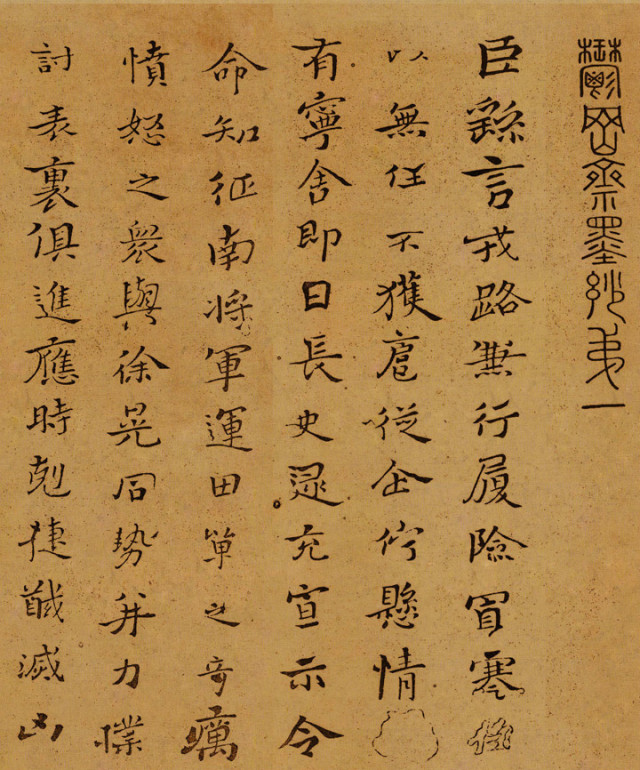 鬱岡齋墨妙第一
臣繇言戎路兼行履險冒寒
以無任不獲扈從企佇懸情
有寧舍即日長史逯充宣示令
命知征南將軍運田單之奇癘
憤怒之衆與徐晃同勢并力撲
討表裏俱進應時剋捷馘滅凶